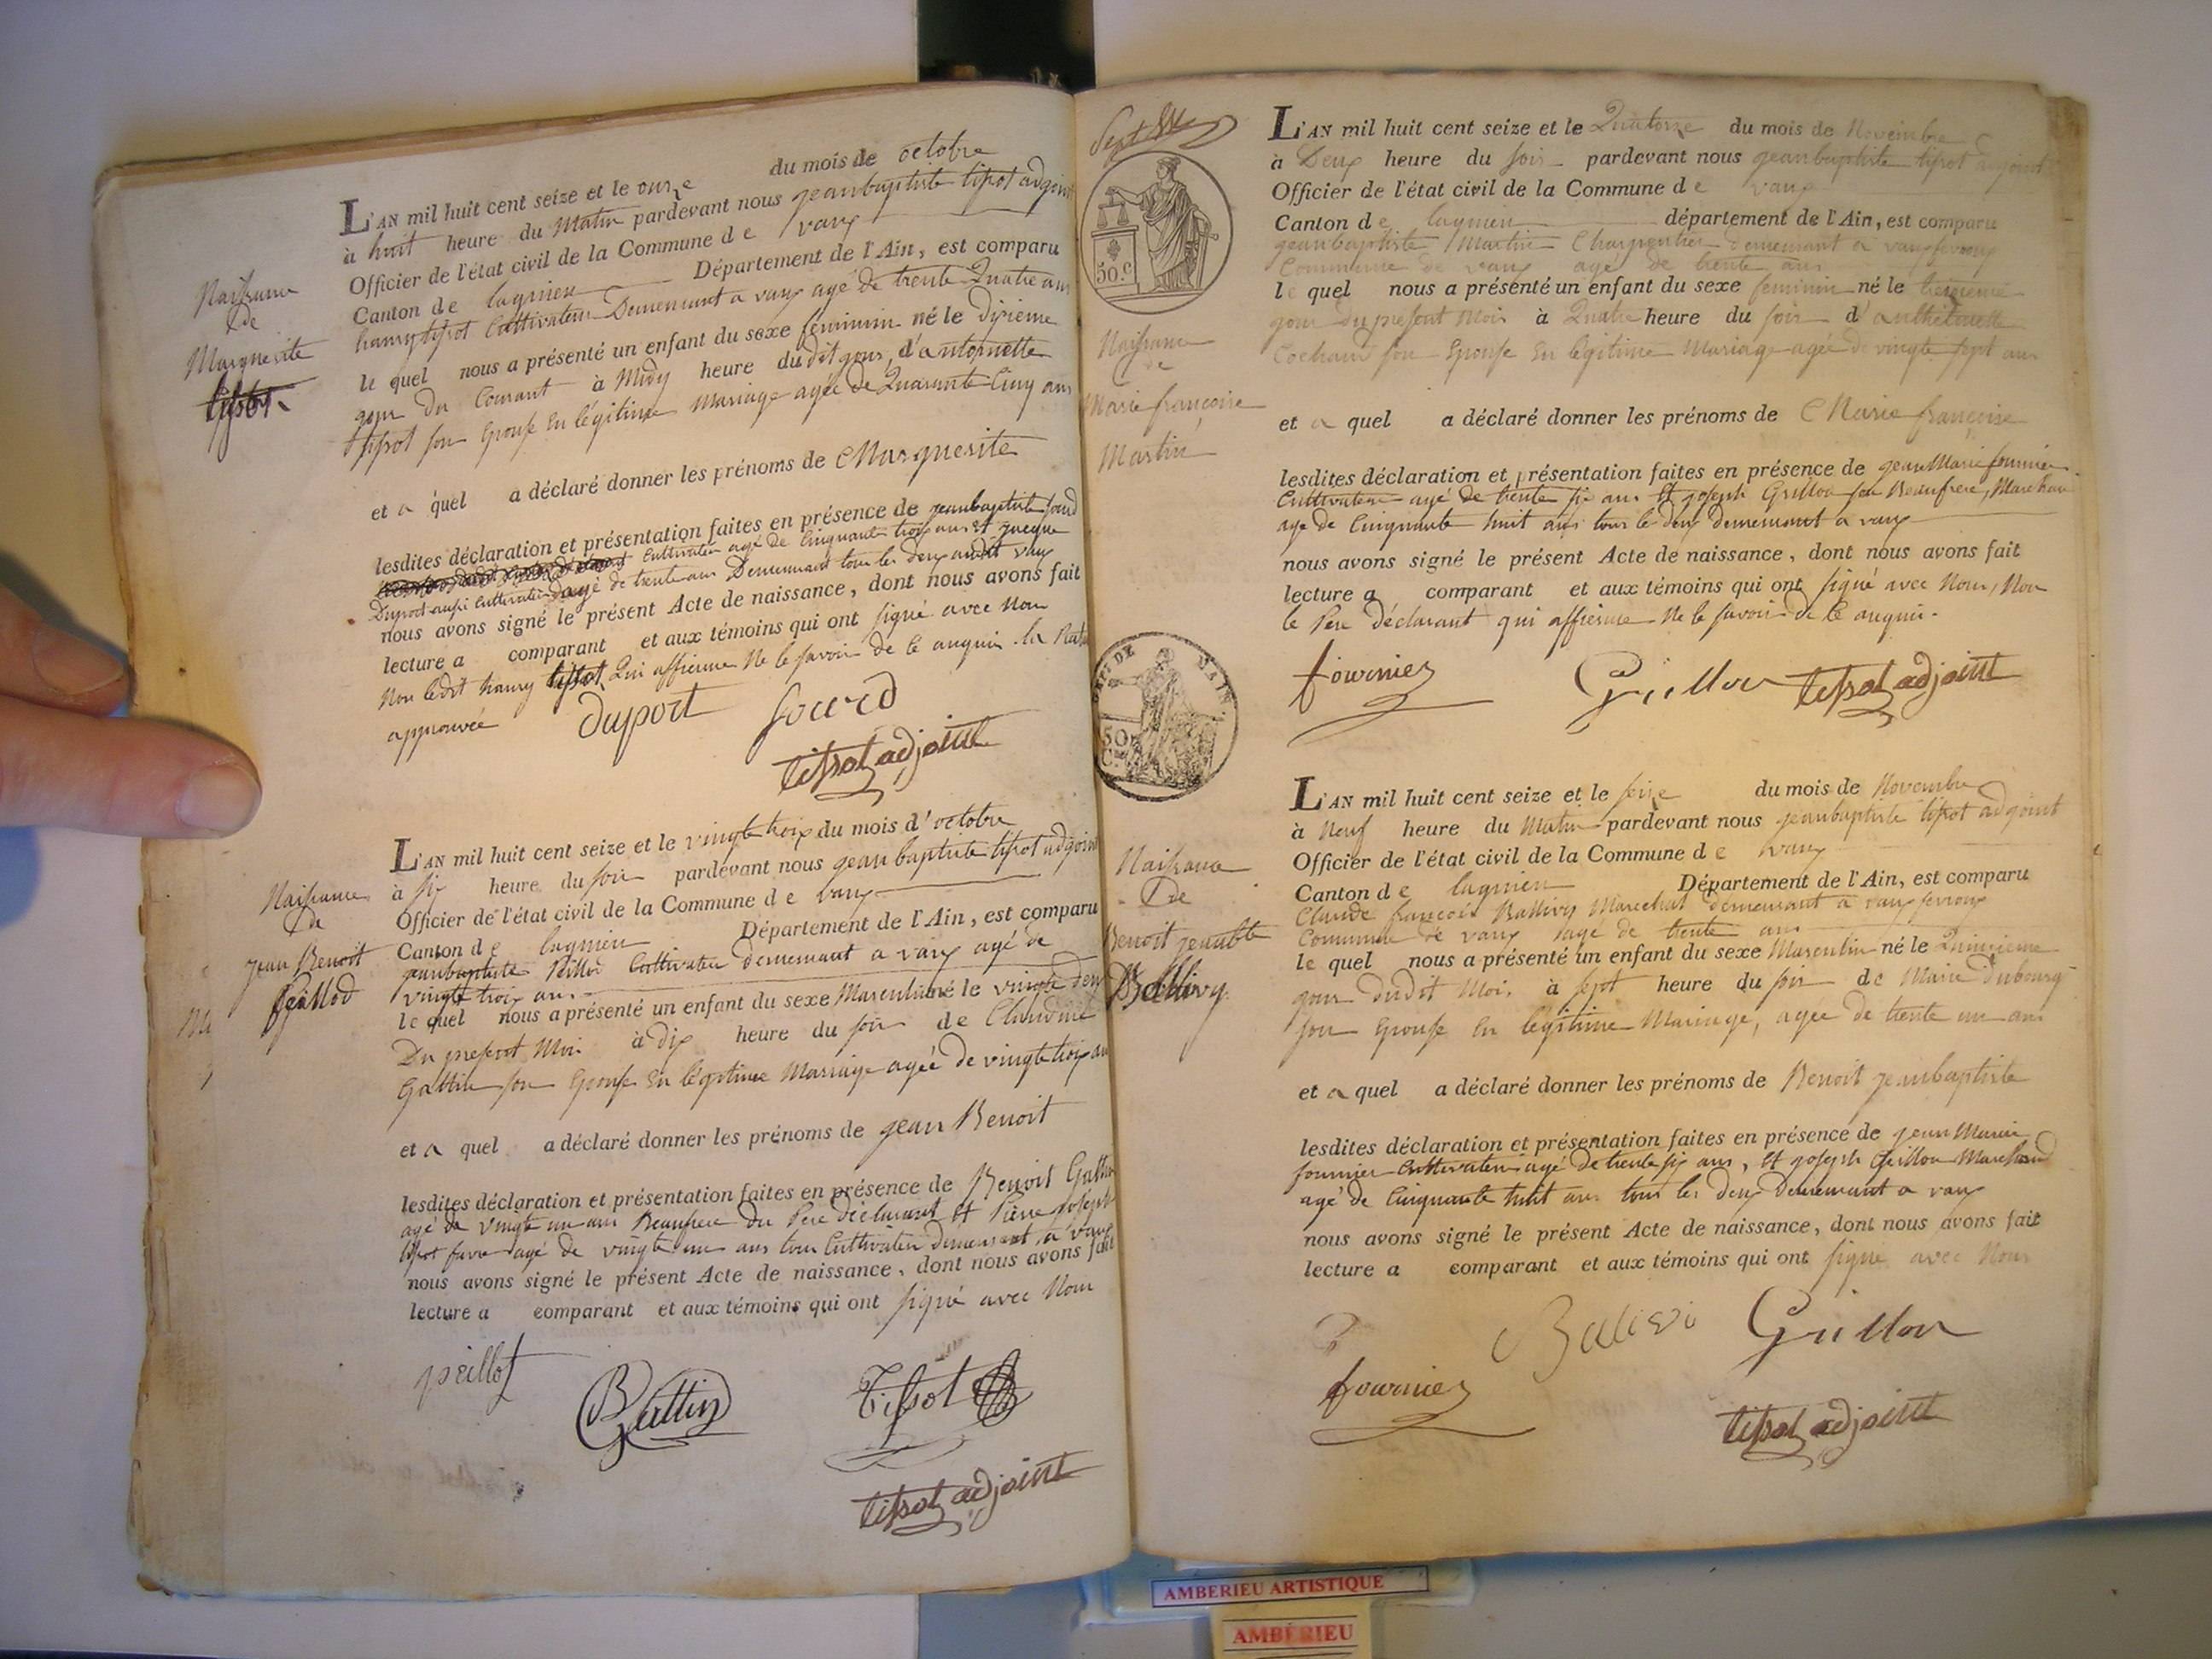 Naissance
De
Marguerite
tissot
L'AN mil huit cent seize et le onze du mois de octobre
à huit heure du Matin pardevant nous jeanbaptiste tissot adjoint
Officier de l'état civil de la Commune de vaux
Canton de lagnieu Département de l'Ain, est comparu
hanry tissot Cultivateur Demeurant a vaux agé de trente Quatre ans
le quel nous a présenté un enfant du sexe féminin né le dixieme
jour du Courant à Midy heure dudit jour, d'antoinette
tissot son Epouse En légitime Mariage agée de Quarante Cinq ans
et a quel a déclaré donner les prénoms de Marguerite
lesdites déclaration et présentation faites en présence de jeanbaptiste sourd
Cultivateur agé de Cinquante trois ans Et jacque
Duport aussi Cultivateur agé de trente ans Demeurant tous les deux audit vaux
nous avons signé le présent Acte de naissance, dont nous avons fait
lecture a comparant et aux témoins qui ont signé avec Nous
Non ledit hanry tissot Qui affierme Ne le savoir de ce anquis la
approuvée
duport sourd
tissot adjoint
Naissance
De
jean Benoit
peillod
L'AN mil huit cent seize et le vingte troix du mois d'octobre
à six heure du soir pardevant nous jean baptiste tissot adjoint
Officier de l'état civil de la Commune de vaux
Canton de lagnieu Département de l'Ain, est comparu
jeanbaptiste Peillod Cultivateur demeurant a vaux agé de
vingte trois ans
le quel nous a présenté un enfant du sexe Masculin né le vingte deux
Du present Mois à dix heure du soir de Claudine
Gattin son Epouse En légitime Mariage agée de vingte trois ans
et a quel a déclaré donner les prénoms de jean Benoit
lesdites déclaration et présentation faites en présence de Benoit Gattin
agé de vingte un ans Beaufrere du Pere déclarant Et Pierre joseph
tissot favre agé de vingte un ans tous Cultivateur demeurant a vaux
nous avons signé le présent Acte de naissance, dont nous avons fait
lecture a comparant et aux témoins qui ont signé avec Nous
peillot
B Gattin
Tissot
tissot adjoint
50.c
Naissance
de
Marie françoise
Martin
L'AN mil huit cent seize et le Quatorze du mois de Novembre
à Deux heure du soir pardevant nous jeanbaptiste tissot adjoint
Officier de l'état civil de la Commune de vaux
Canton de lagnieu département de l'Ain, est comparu
jeanbaptiste Martin Charpentier demeurant a vauxfevroux
Commune de vaux agé de trente ans
le quel nous a présenté un enfant du sexe feminin né le treizieme
jour du present Mois à Quatre heure du soir d'anthetouette
Cochand son Epouse En légitime Mariage agée de vingte sept ans
et a quel a déclaré donner les prénoms de Marie françoise
lesdites déclaration et présentation faites en présence de jean Marie fournier
Cultivateur agé de trente six ans Et joseph Grillon son Beaufrere, Marchand
age de Cinquante huit ans tous le deux demeurant a vaux
nous avons signé le présent Acte de naissance, dont nous avons fait
lecture a comparant et aux témoins qui ont signé avec Nous, Non
le Pere déclarant qui affierme Ne le savoir de ce anquis.
fournier Grillon tissot adjoint
50
Naissance
De
Benoit jeanbte
Ballivy
L'AN mil huit cent seize et le seize du mois de Novembre
à Neuf heure du Matin pardevant nous jeanbaptiste tissot adjoint
Officier de l'état civil de la Commune de vaux
Canton de lagnieu Département de l'Ain, est comparu
Claude françois Ballivy Marechal demeurant a vauxfevroux
Commune de vaux agé de trente ans
le quel nous a présenté un enfant du sexe Masculin né le Quinzieme
jour dudit Mois à sept heure du soir de Marie Dubourg
son Epouse En légitime Mariage, agée de trente un ans
et a quel a déclaré donner les prénoms de Benoit jeanbaptiste
lesdites déclaration et présentation faites en présence de jean Marie
fournier Cultivateur agé de trente six ans, Et joseph Grillon Marchand
agé de Cinquante huit ans tous les deux Demeurant a vaux
nous avons signé le présent Acte de naissance, dont nous avons fait
lecture a comparant et aux témoins qui ont signé avec Nous
Balivi Grillon
fournier
tissot adjoint
AMBERIEU ARTISTIQUE
AMBÉRIEU